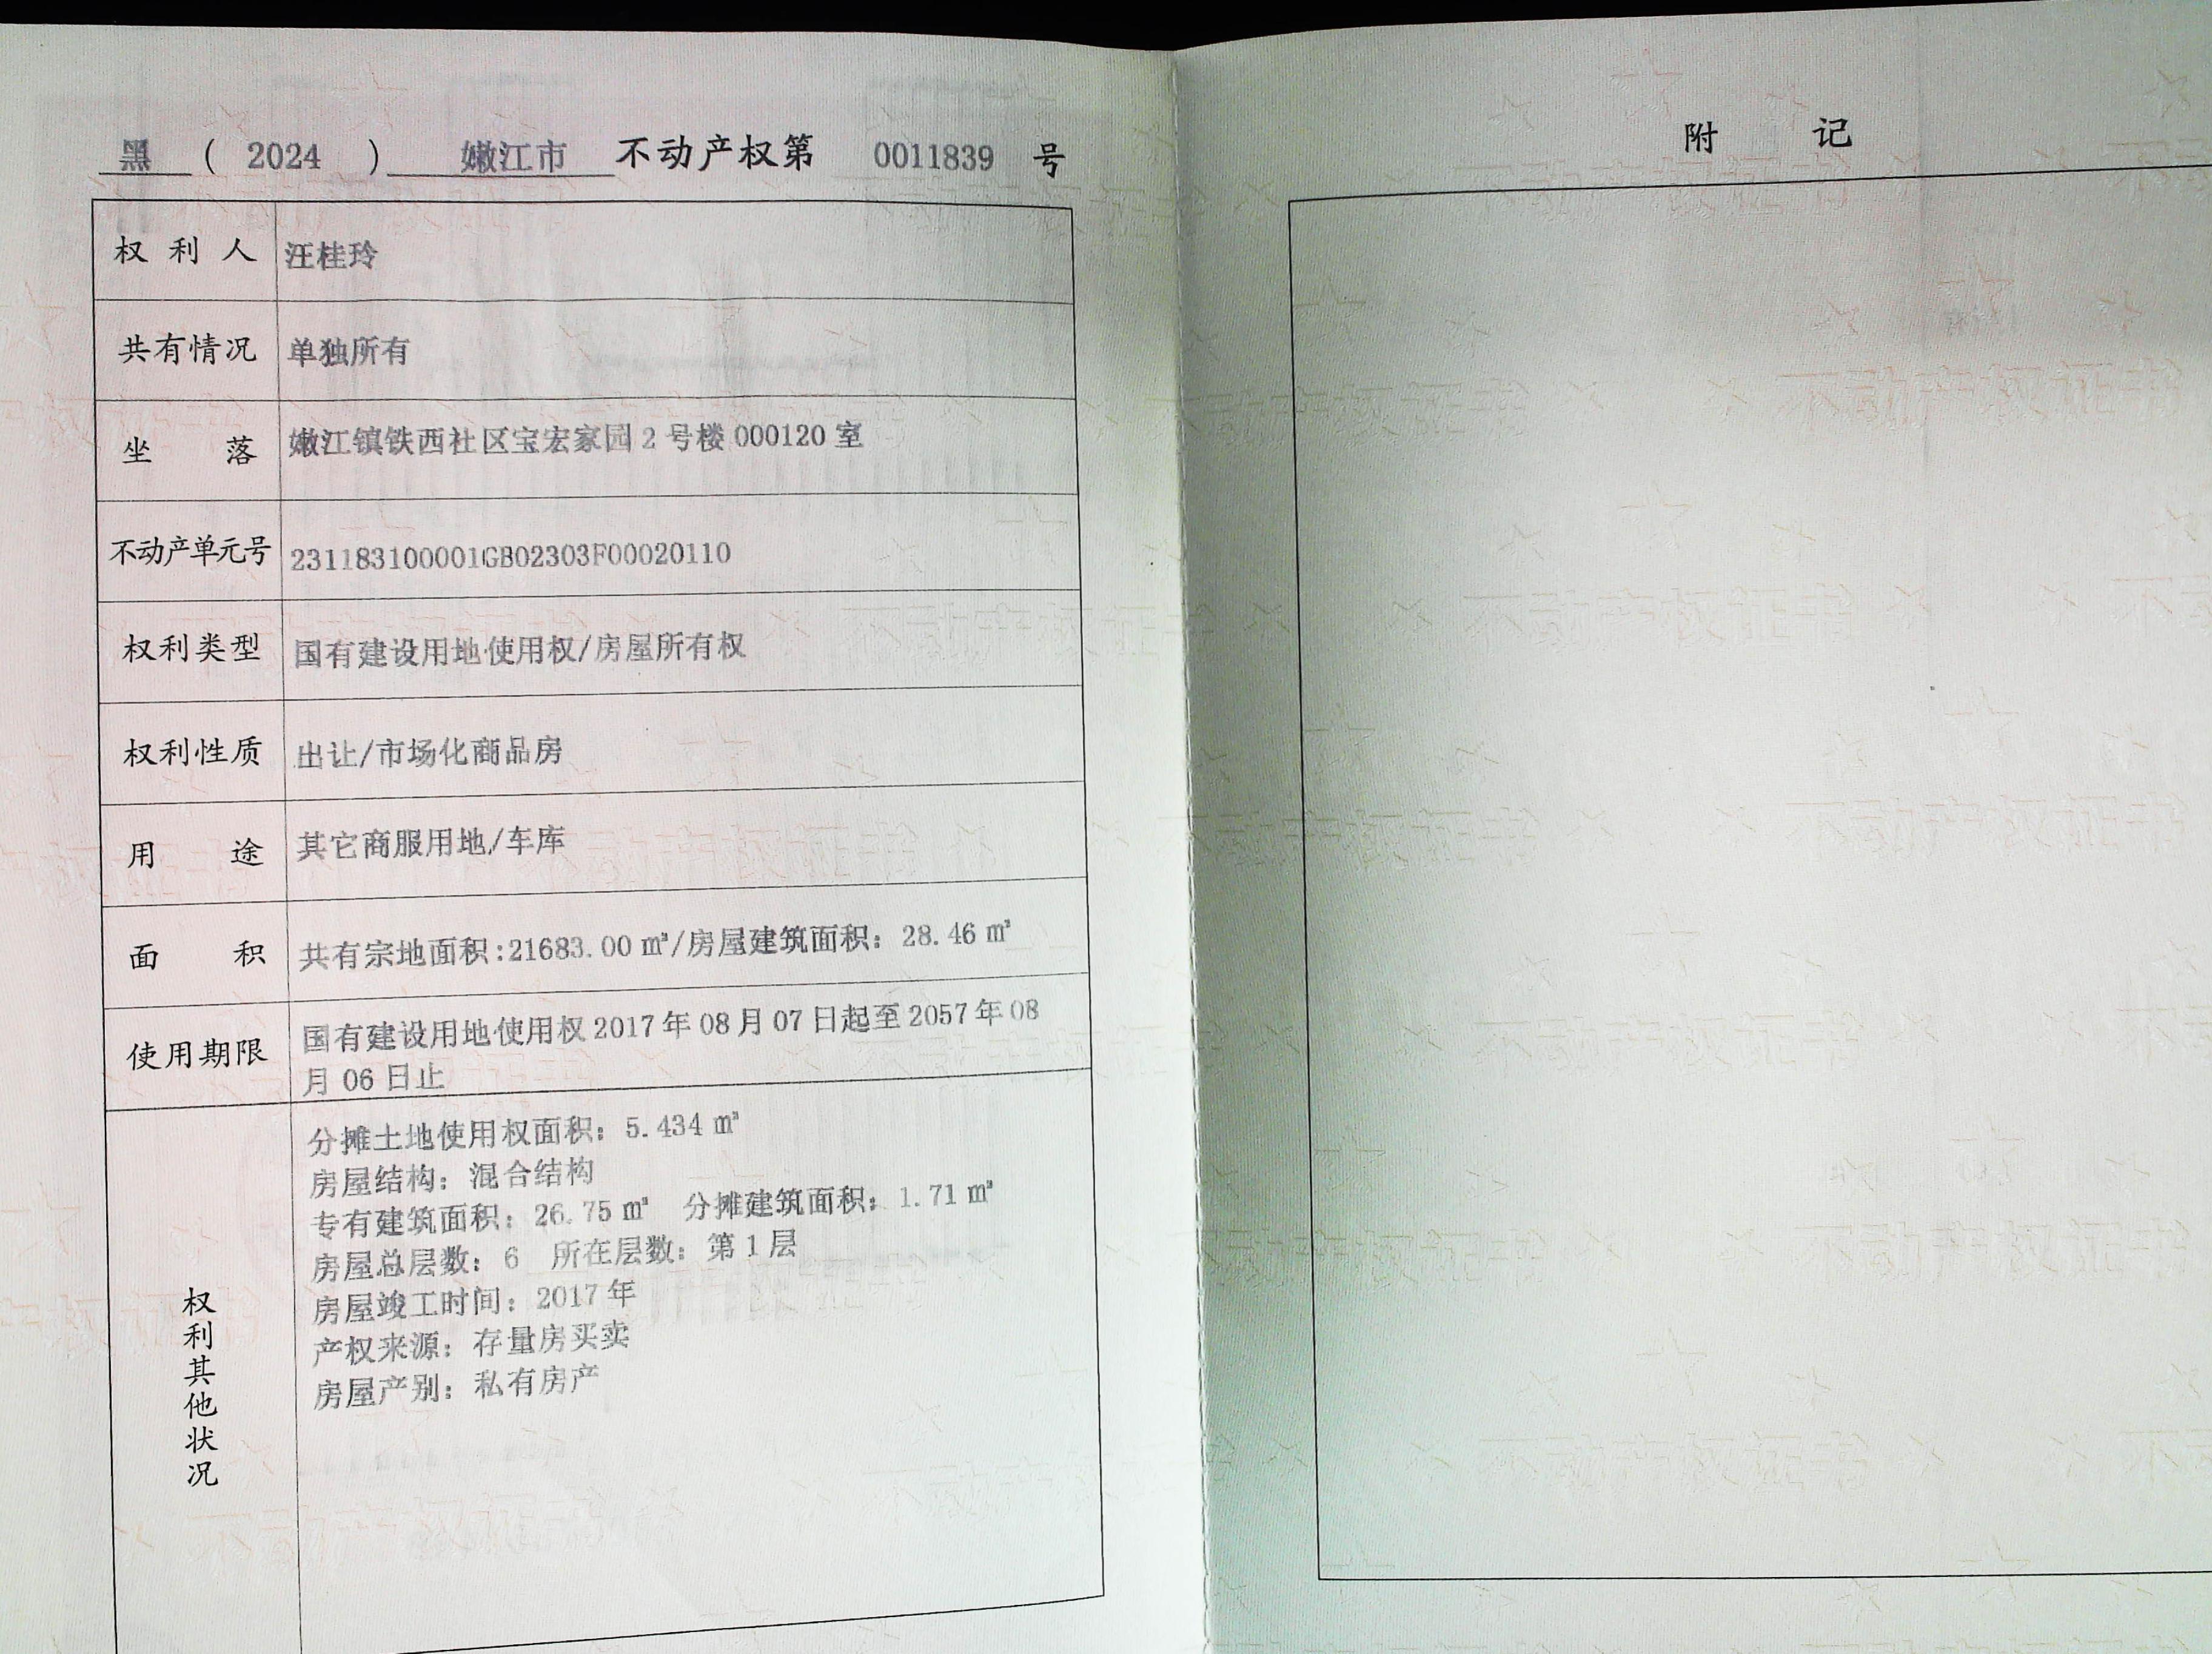 黑 ( 2024 ) 嫩江市 不动产权第 0011839 号
权利人 汪桂玲
共有情况 单独所有
坐落 嫩江镇铁西社区宝宏家园 2 号楼 000120 室
不动产单元号 231183100001GB02303F00020110
权利类型 国有建设用地使用权/房屋所有权
权利性质 出让/市场化商品房
用途 其它商服用地/车库
面积 共有宗地面积:21683.00 ㎡/房屋建筑面积：28.46 ㎡
使用期限 国有建设用地使用权 2017 年 08 月 07 日起至 2057 年 08
月 06 日止
权利其他状况
分摊土地使用权面积：5.434 ㎡
房屋结构：混合结构
专有建筑面积：26.75 ㎡ 分摊建筑面积：1.71 ㎡
房屋总层数：6 所在层数：第 1 层
房屋竣工时间：2017 年
产权来源：存量房买卖
房屋产别：私有房产
附记